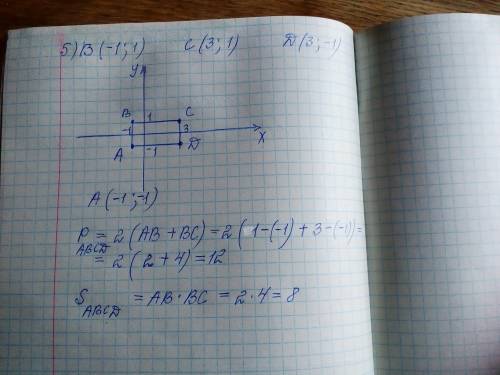 5) B (-1; 1) C (3; 1) D (3; -1)
y
B 1 C
-1 3
x
A -1 D
A (-1; -1)
P ABCD = 2 (AB + BC) = 2 (1-(-1) + 3-(-1)) =
= 2 (2 + 4) = 12
S ABCD = AB · BC = 2 · 4 = 8